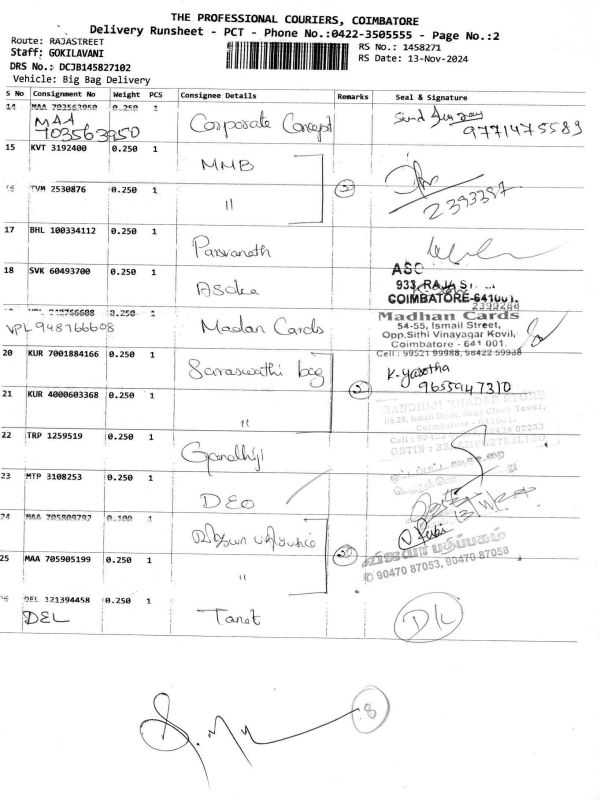 THE PROFESSIONAL COURIERS, COIMBATORE
Delivery Runsheet - PCT - Phone No.:0422-3505555 - Page No.:2
Route: RAJASTREET
Staff: GOKILAVANI
DRS No.: DCJB145827102
Vehicle: Big Bag Delivery
RS No.: 1458271
RS Date: 13-Nov-2024
S No Consignment No Weight PCS Consignee Details Remarks Seal & Signature
14 MAA 703563950 0.250 1
MAA
703563950 Corporate Concept 9771475583
15 KVT 3192400 0.250 1 MMB
16 TVM 2530876 0.250 1 " 2 2393387
17 BHL 100334112 0.250 1 Parsvanath
18 SVK 60493700 0.250 1 Asoka
933, RAJA S
COIMBATORE-641001.
2399284
19 VPL 948766608 0.250 1
VPL 948766608 Madan Cards
Madhan Cards
54-55, Ismail Street,
Opp.Sithi Vinayagar Kovil,
Coimbatore - 641 001.
Cell : 99521 99988, 98422 59938
20 KUR 7001884166 0.250 1 Saraswathi bag K. Yasotha
9655947310
21 KUR 4000603368 0.250 1 " 2
GANDHIJI KHADAR STORE
22 TRP 1259519 0.250 1 Gandhiji
23 MTP 3108253 0.250 1 DEO
24 MAA 705809792 0.100 1 விஜயா பதிப்பகம்
25 MAA 705905199 0.250 1 " 2
விஜயா பதிப்பகம்
90470 87053, 90470 87058
26 DEL 321394458 0.250 1
DEL Tanet D/L
8